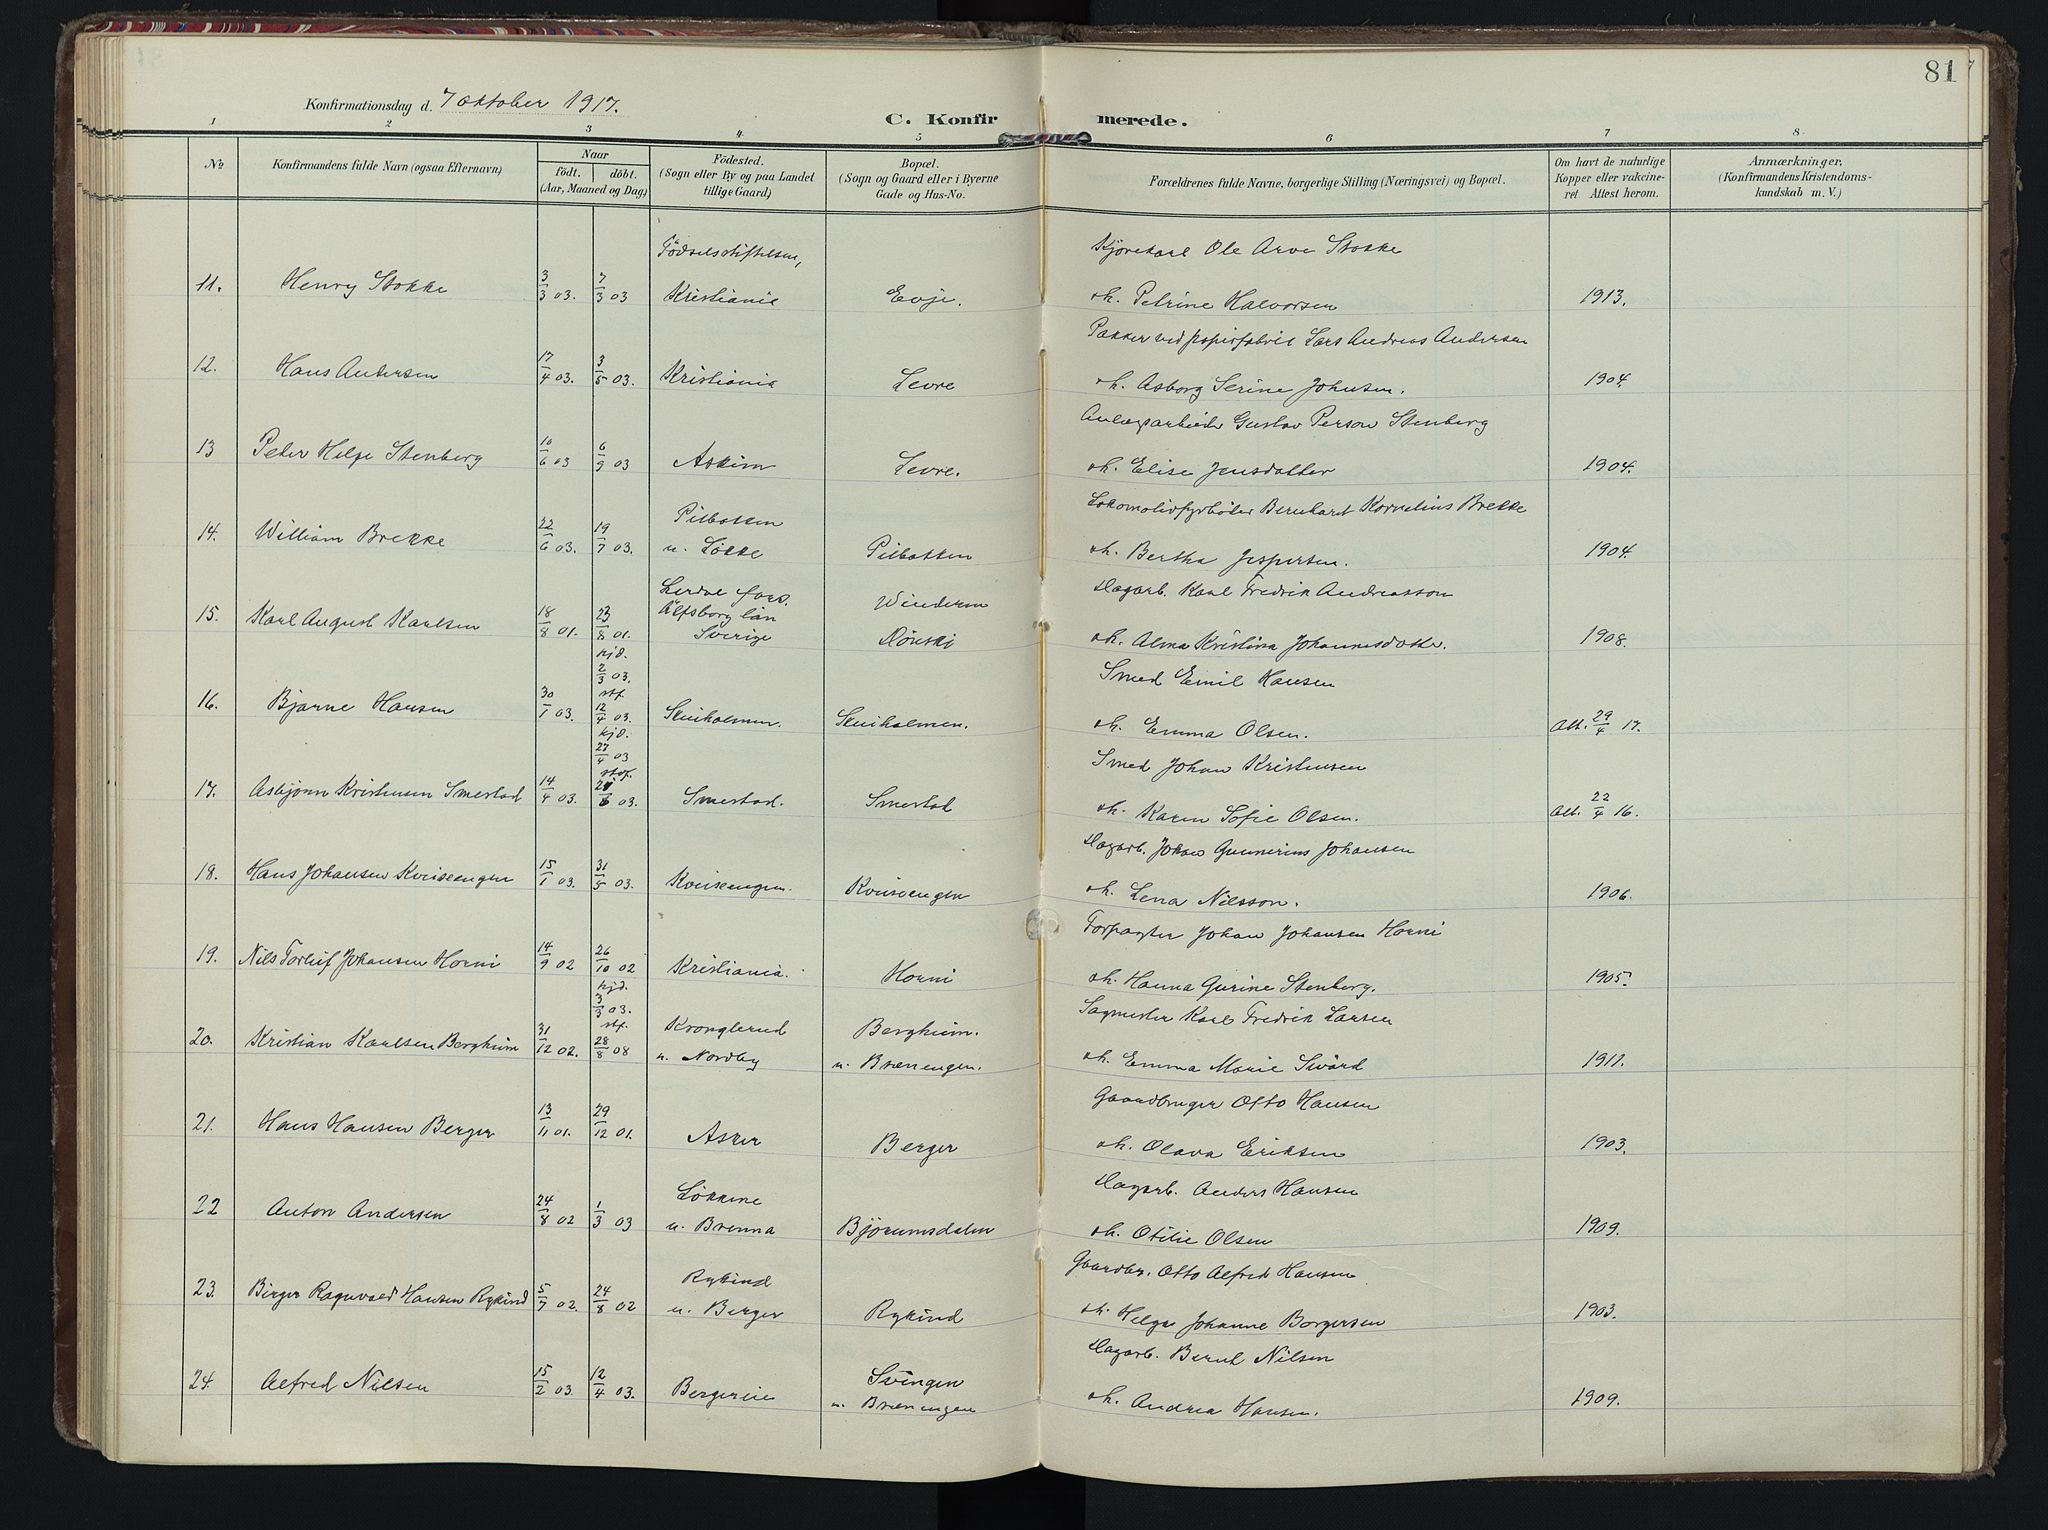 81
Konfirmationsdag d. 7 oktober 1917.
C. Konfirmerede.
1 2 3 4 5 6 7 8
No
Konfirmandens fulde Navn (ogsaa Efternavn)
Naar
født. döbt.
(Aar, Maaned og Dag)
Födested.
(Sogn eller By og paa Landet
tillige Gaard)
Bopæl.
(Sogn og Gaard eller i Byerne
Gade og Hus-No.
Forældrenes fulde Navne, borgerlige Stilling (Næringsvei) og Bopæl.
Om havt de naturlige
Kopper eller vakcine-
ret. Attest herom.
Anmærkninger,
(Konfirmandens Kristendoms-
kundskab m. V.)
Fødselsstiftelsen, Kjørekarl Ole Arve Stokke
11. Henry Stokke 3/3 03. 7/3 03 Kristiania Evje. oh. Petrine Halvorsen 1913.
Pakker ved papirfabrik Lars Andreas Andersen
12. Hans Andersen 17/4 03. 3/5 03. Kristiania Levre oh. Asborg Serine Johnsen. 1904.
Anlægsarbeider Gustav Person Stenberg
13 Peter Helge Stenberg 10/6 03 6/9 03 Askim Levre. oh. Elise Jensdatter 1904.
Pilbakken Lokomotivfyrbøder Bernhart Kornelius Brekke
14. William Brekke 22/6 03. 19/7 03. u. Løkke Pilbakken oh. Bertha Jespersen. 1904.
Lerdve fors. Winderen Dagarb. Karl Fredrik Andreasson
15. Karl August Karlsen 18/8 01. 23/8 01. Älfsborg län
Sverige Dønski oh. Alma Kristina Johannesdotter. 1908.
hjd. 2/3 03. Smed Emil Hansen
16. Bjarne Hansen 30/1 03. stf. 12/4 03. Skuiholmen. Skuiholmen. oh. Emma Olsen. Att. 29/4 17.
hjd. 27/4 03 Smed Johan Kristensen
17. Asbjørn Kristensen Smestad 14/4 03. stf. 21/6 03. Smestad. Smestad oh. Karen Sofie Olsen. Att. 22/4 16.
Dagarb. Johan Gunnerius Johansen
18. Hans Johansen Kviseengen 15/1 03. 31/5 03. Kviseengen. Kviseengen oh. Lena Nilsson. 1906.
Forpagter Johan Johansen Horni
19. Nils Torleif Johansen Horni 14/9 02 26/10 02 Kristiania. Horni oh. Hanna Gurine Stenberg. 1905.
hjd. 3/3 03. Kronglerud Bergheim. Sagmester Karl Fredrik Larsen
20. Kristian Karlsen Bergheim 31/12 02. stf. 28/8 08 u. Nordby u. Brænengen. oh. Emma Marie Swärd 1911.
Gaardbruger Otto Hansen
21. Hans Hansen Berger 13/11 01. 29/12 01. Asker Berger oh. Olava Eriksen 1903.
Løkkene Dagarb. Anders Hansen
22 Anton Andersen 24/8 02 1/3 03 u. Brenna Bjørumsdalen oh. Otilie Olsen 1909.
Rykind Gaardbr. Otto Alfred Hansen
23. Birger Ragnvald Hansen Rykind 5/7 02. 24/8 02 u. Berger Rykind oh. Helga Johanne Borgersen 1903.
Svingen Dagarb. Bernt Nilsen
24. Alfred Nilsen 15/2 03. 12/4 03. Bergereie u. Brænengen oh. Andrea Hansen. 1909.